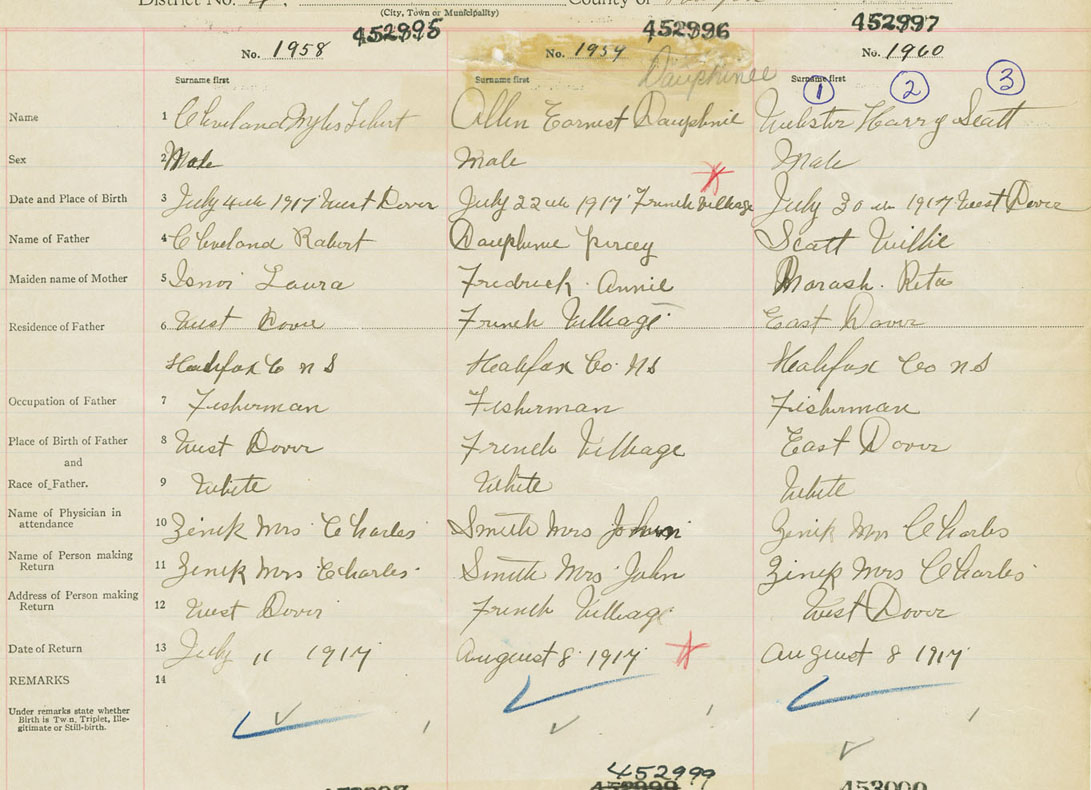 District No. 4. County of
(City, Town or Municipality)
452995 452996 452997
No. 1958 No. 1959 No. 1960
Dauphinee
Surname first Surname first Surname first
1 2 3
Name 1 Cleveland Myles Allen Earnest Dauphnie Webster Harry Scott
Sex 2 Male Male Male
Date and Place of Birth 3 July 4th 1917 West Dover July 22th 1917 French Village July 30th 1917 West Dover
Name of Father 4 Cleveland Robert Dauphinie Scott Willie
Maiden name of Mother 5 Isnor Laura Fredrick Annie Morash Reta
Residence of Father 6 West Dover French Village East Dover
Halifax Co N S Halifax Co. NS Halifax Co N S
Occupation of Father 7 Fisherman Fisherman Fisherman
Place of Birth of Father 8 West Dover French Village East Dover
and
Race of Father. 9 White White White
Name of Physician in
attendance 10 Zink Mrs Charles Smith Mrs John Zink Mrs Charles
Name of Person making
Return 11 Zink Mrs Charles Smith Mrs John Zink Mrs Charles
Address of Person making
Return 12 West Dover French Village West Dover
Date of Return 13 July 11 1917 August 8 1917 August 8 1917
REMARKS 14
Under remarks state whether
Birth is Twin, Triplet, Ille-
gitimate or Still-birth.
452999